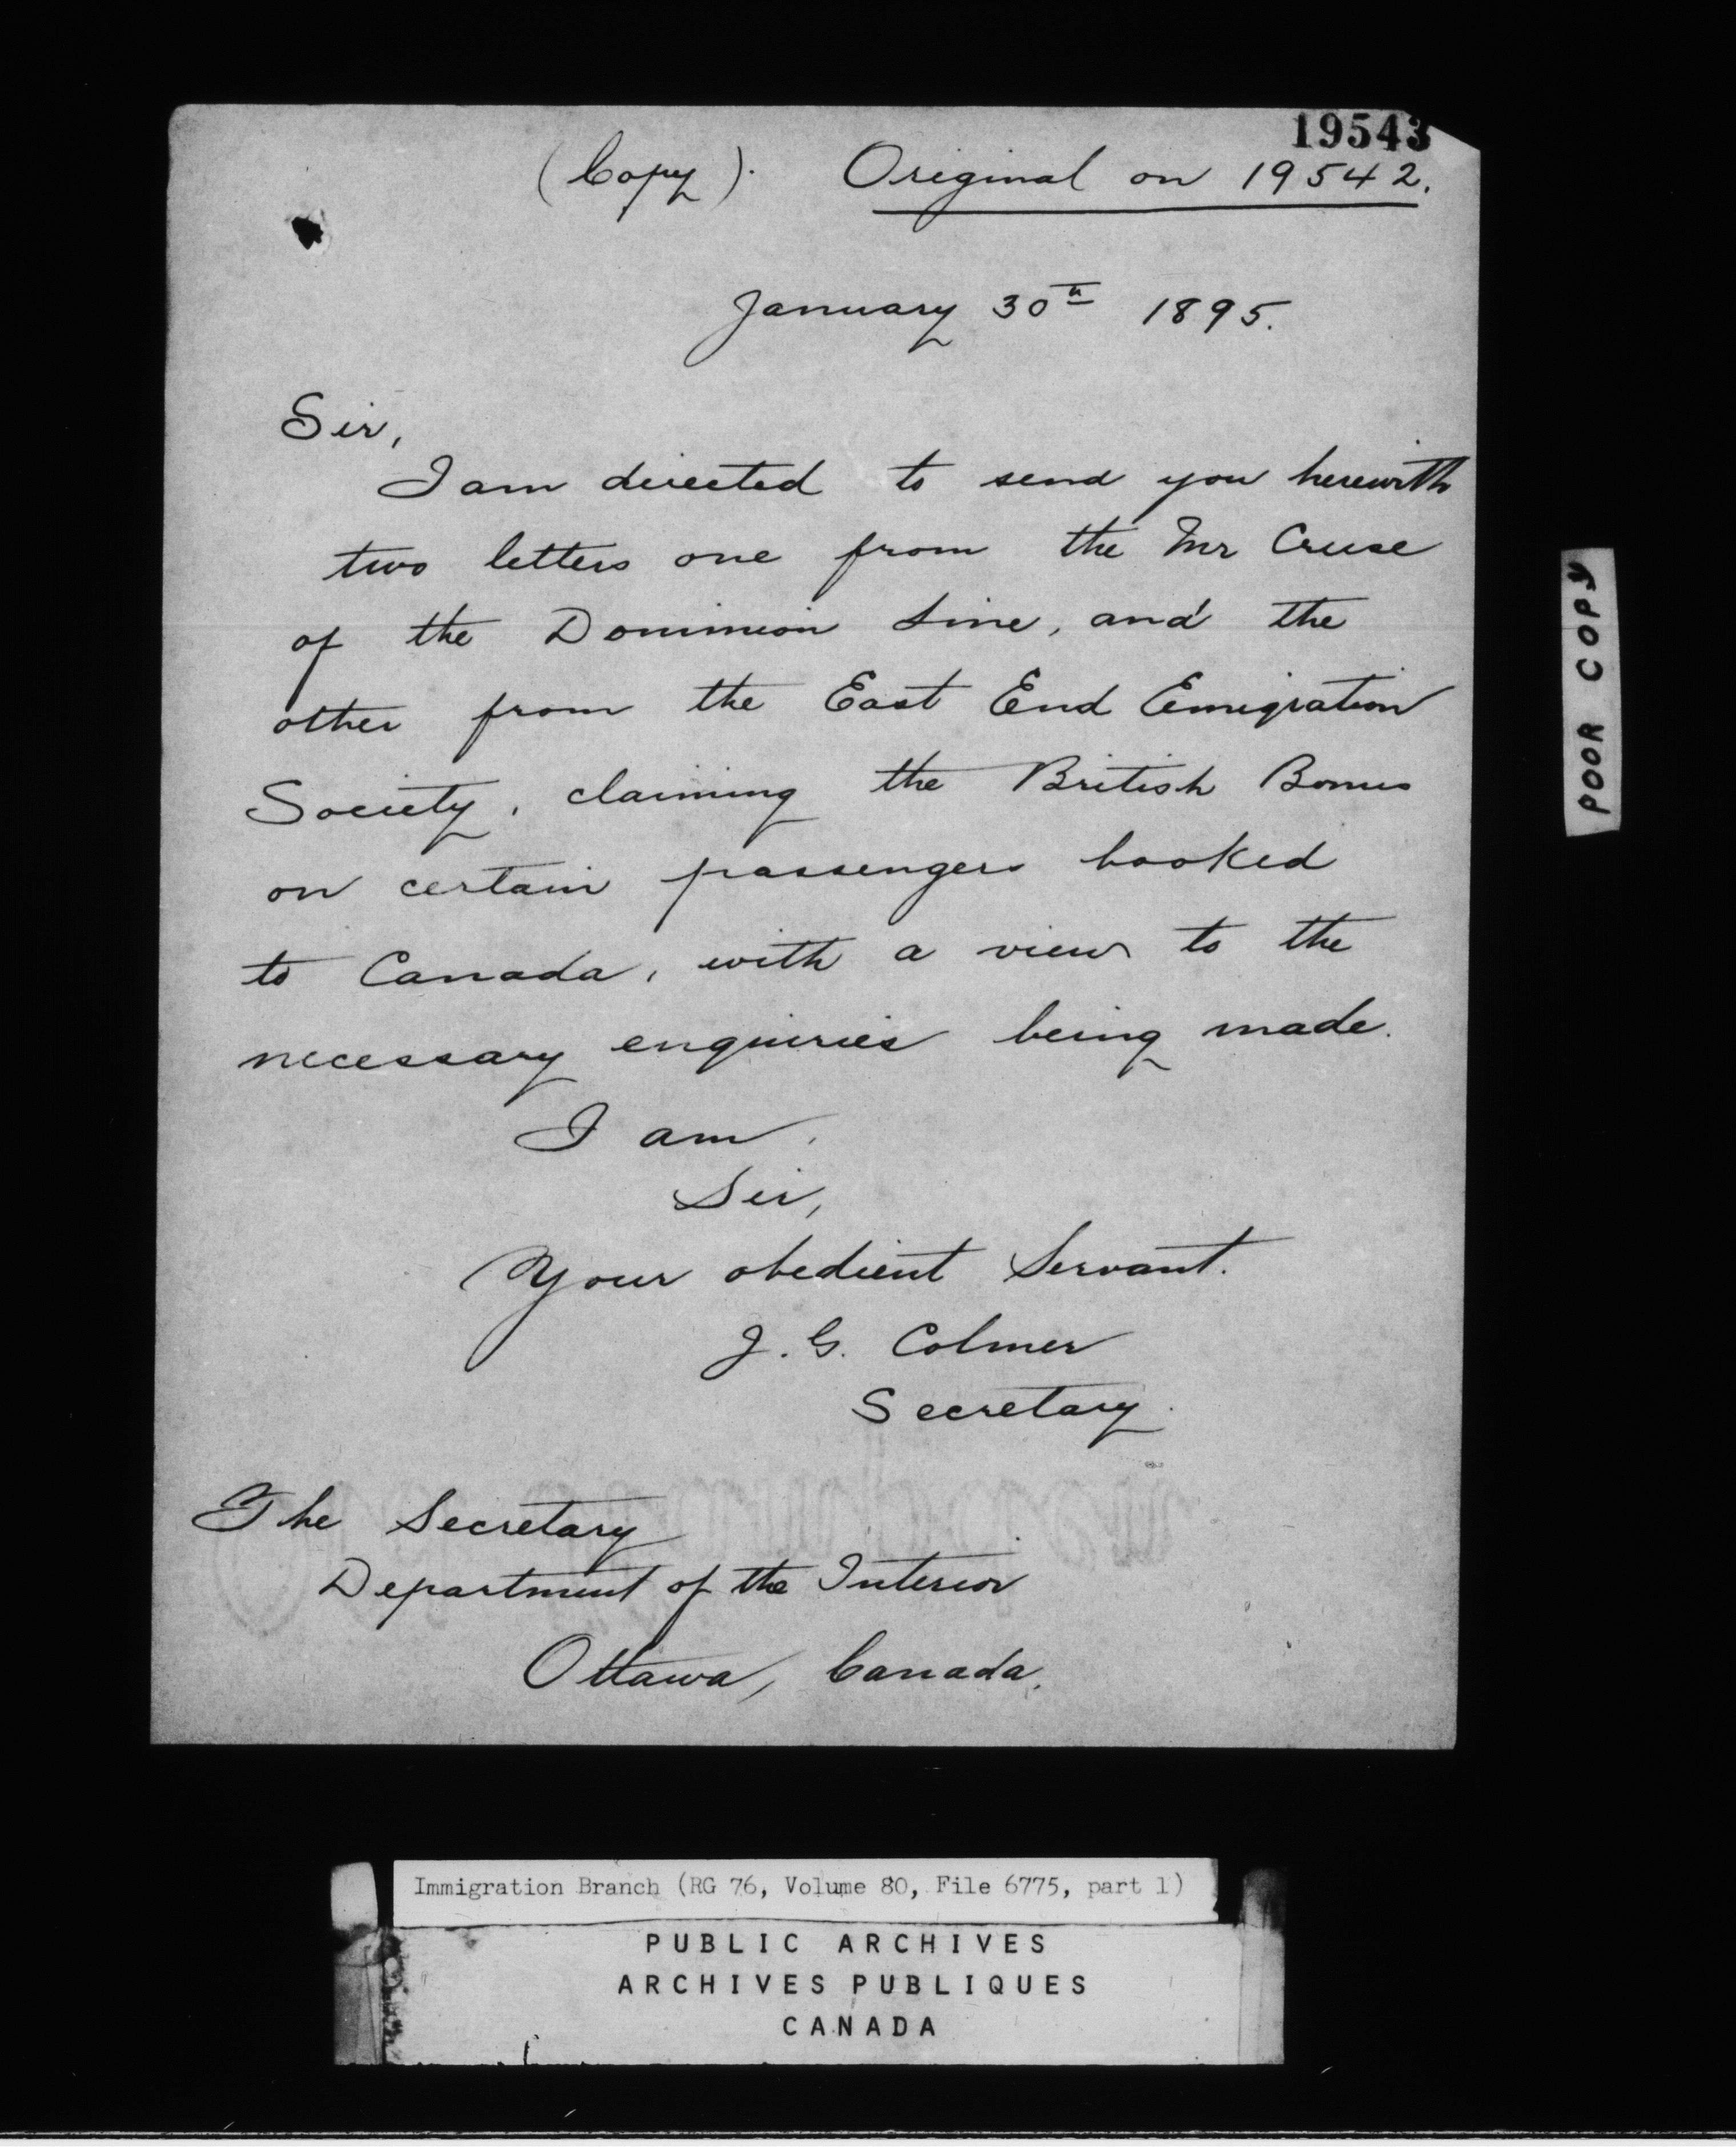 19543
(Copy). Original on 19542.
January 30th 1895.
Sir,
I am directed to send you herewith
two letters one from the Mr Cruse
of the Dominion Line, and the
other from the East End Emigration
Society, claiming the British Bonus
on certain passengers booked
to Canada, with a view to the
necessary enquiries being made.
I am,
Sir,
Your obedient Servant.
J. G. Colmer
Secretary.
The Secretary
Department of the Interior
Ottawa, Canada.
POOR COPY
Immigration Branch (RG 76, Volume 80, File 6775, part 1)
PUBLIC ARCHIVES
ARCHIVES PUBLIQUES
CANADA